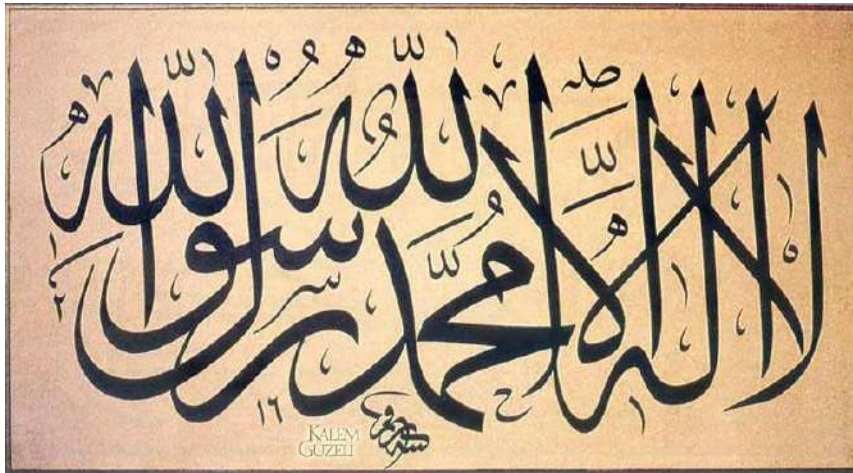 لا اله الا الله محمد رسول الله
١٢
١٦
KALEM
GÜZELİ